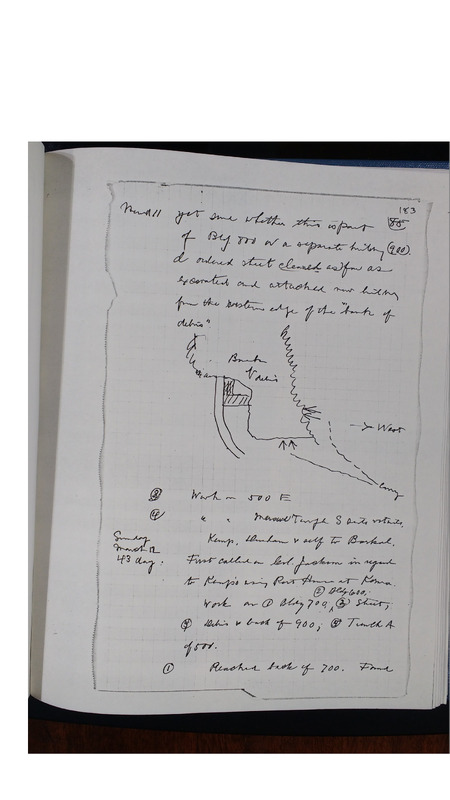 183
March 11 yet sure whether this is part 85
of Bldg 800 or a separate bldg (900).
d ordered street cleared as far as
excavated and attached new bldg
from the western edge of the "bank of
debris".
Bank
of debris
→ West
③ Work on 500 E
④ " "
Sunday Kemp, Dunham & self to Barkal.
March 12 First called on Col. Jackson in regard
43 day. to Kemp's using Post House at Kerma.
② Bldg 600,
Work on ① Bldg 700, ③ Street,
④ Debris & back of 900; ⑤ Trench A
of 500.
① Reached back of 700. Found